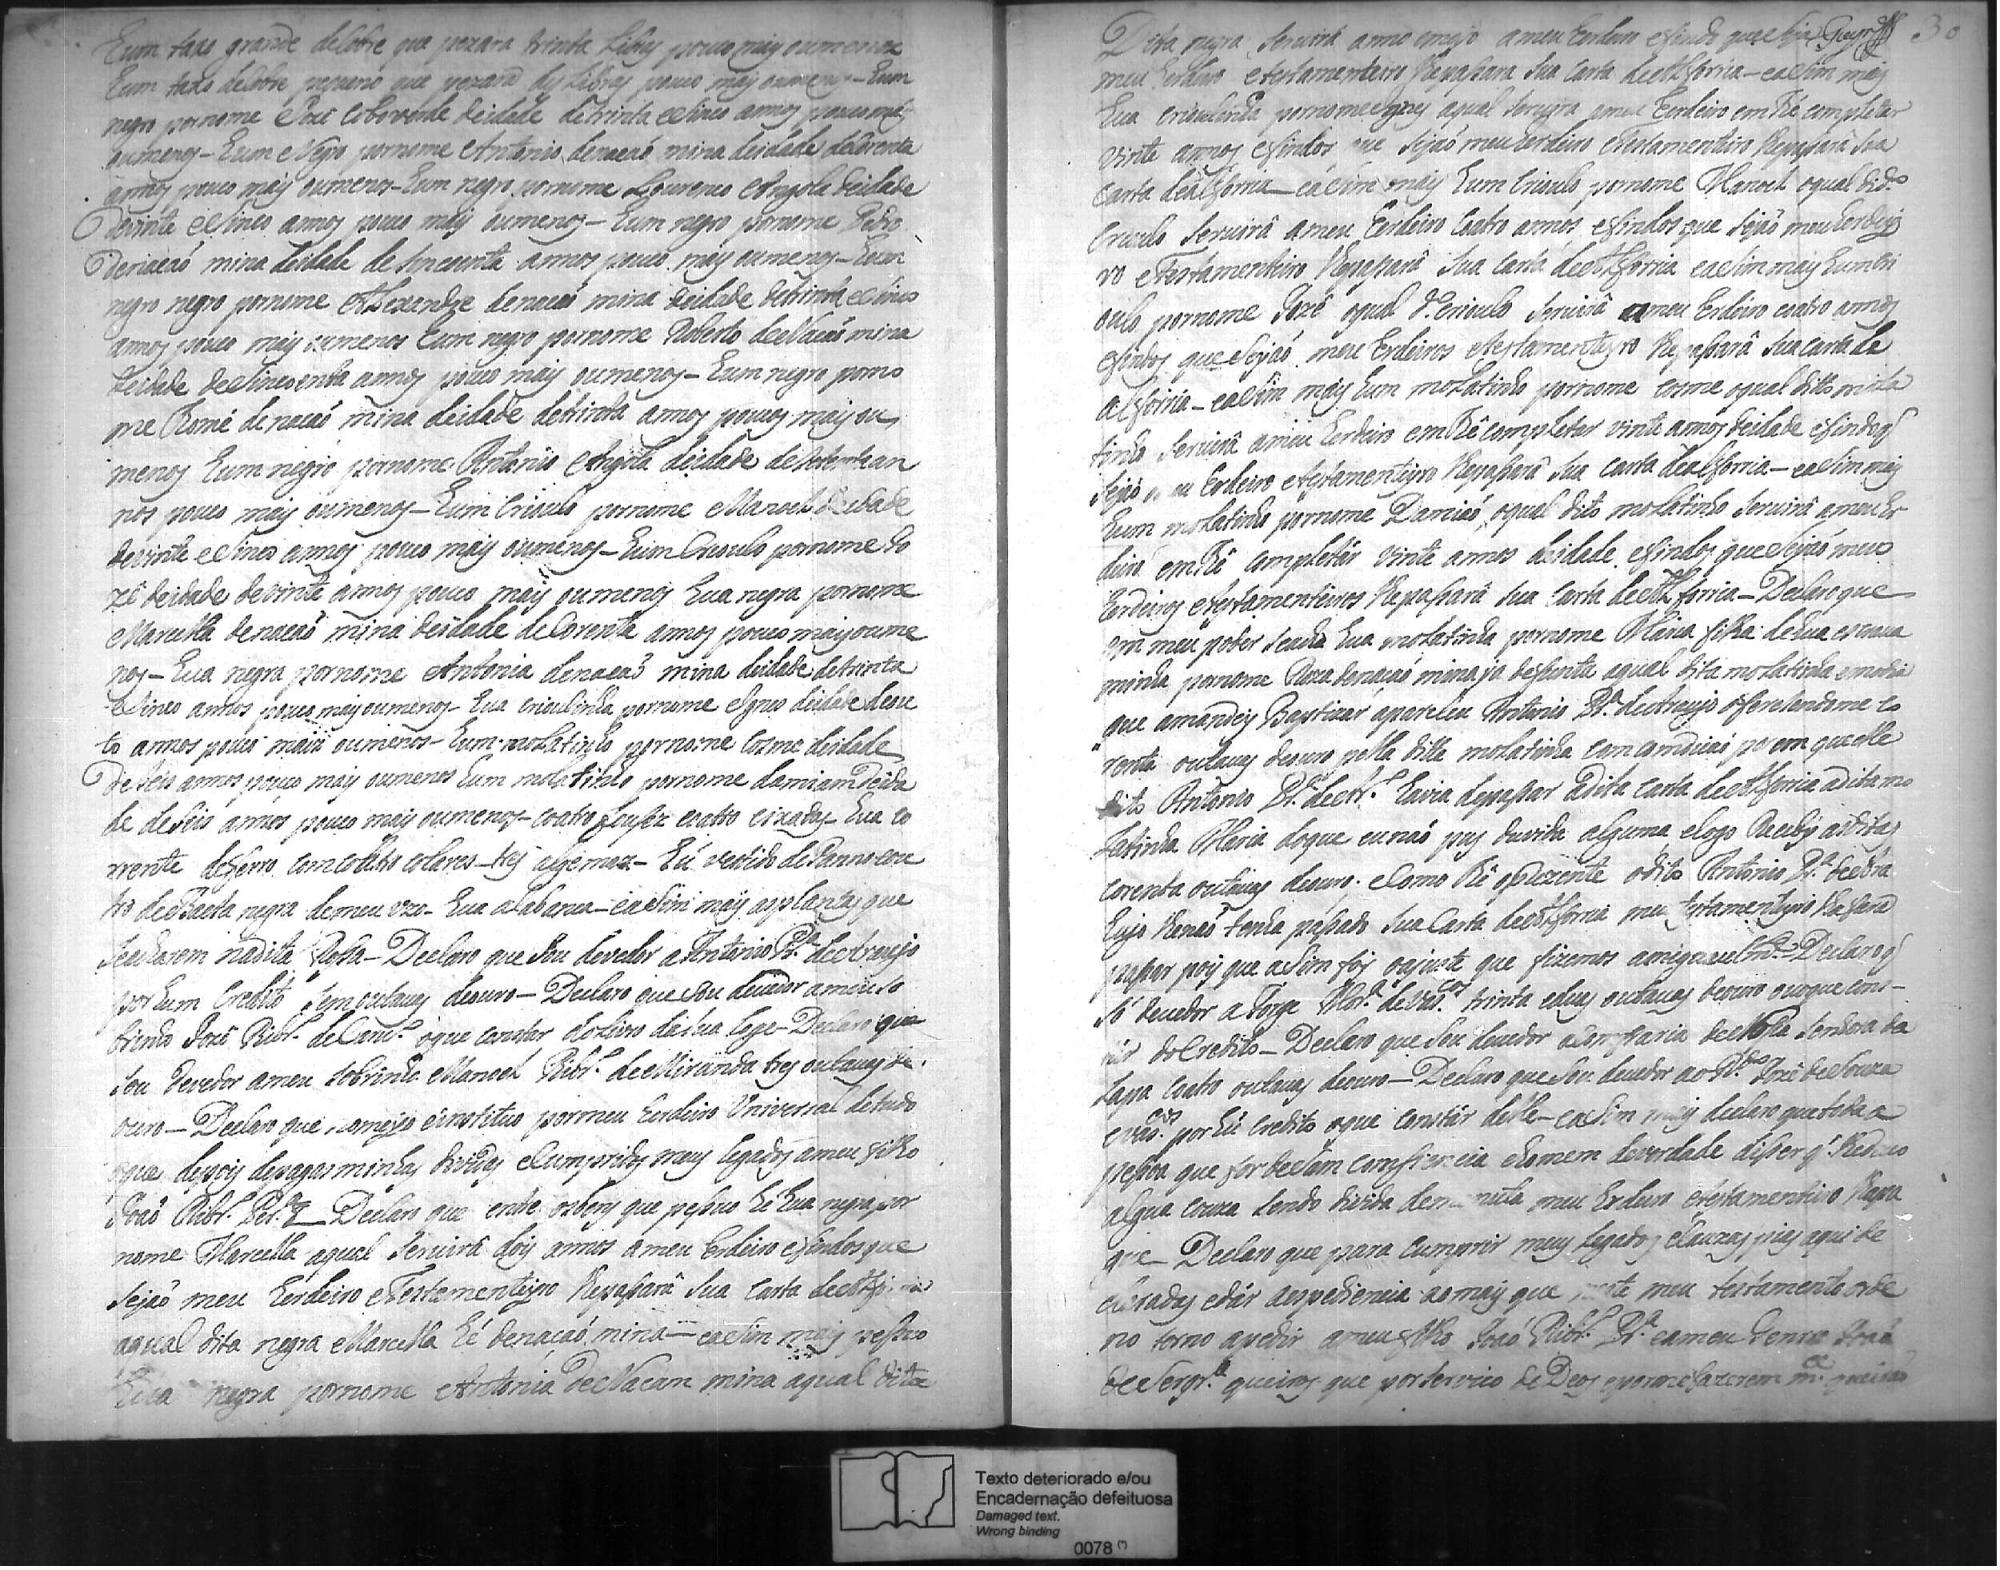 Eum taxo grande de Cobre que pezara trinta Libras pouco mais oumenos
Eum taxo de Cobre pequeno que pezará des Libras pouco mais oumenos – Eum
negro por nome José Coboverde deidade de trinta e sinco annos pouco mais
oumenos – Eum Negro por nome Antonio denacaó mina deidade de Corenta
annos pouco mais oumenos – Eum negro por nome Lourenco Angola deidade
devinte e sinco annos pouco mais oumenos – Eum negro por nome Pedro
Denacaó mina deidade de sincoenta annos pouco mais oumenos – Eum
negro negro por nome Alexandre denacaó mina deidade de trinta e sinco
annos pouco mais oumenos Eum negro por nome Roberto de Nacaó mina
deidade de sincoenta annos pouco mais oumenos – Eum negro por no
me Romé denacaó mina deidade de trinta annos pouco mais ou
menos Eum negro por nome Antonio Angola deidade de an
nos pouco mais oumenos – Eum Crioulo por nome Manoel deidade
devinte e sinco annos pouco mais oumenos – Eum Crioulo por nome Jo
zê deidade de vinte annos pouco mais oumenos Eua negra por nome
Marcella denacaó mina deidade de Corenta annos pouco mais oume
nos – Eua negra por nome Antonia denacaó mina deidade de trinta
e sinco annos pouco mais oumenos – Eua crioulinha por nome Ignes deidade de ou
to annos pouco mais oumenos – Eum molatinho por nome Cosme deidade
De seis annos pouco mais oumenos Eum molatinho por nome Damiam deida
de de seis annos pouco mais oumenos – coatro fouses coatro eixadas – Eua co
rrente de ferro com coatro colares – tres algemas – Eú vestido de Panno cou
tro de Baeta negra de meu uzo – Eua alabanca – easim mais asplantas que
se acharem nadita Rossa – Declaro que Sou devedor a Antonio Pr.ª de Araujo
por Eum Credito Sem outavas deouro – Declaro que Sou devedor ameu So
brinho José Ribr.º de Carv.º oque constar doLivro dasua Loge – Declaro que
Sou devedor ameu Sobrinho Manoel Ribr.º de Miranda tres outavas de
ouro – Declaro que nomeyo einstituo por meu Erdeiro Universal detudo
oque depois depagas minhas dividas eCumpridos meus Legados ameu filho
Joaó Ribr.º Per.ª – Declaro que entre osbens que pessuo Eé Eua negra por
nome Marcella aqual Servirâ dois annos a meu Erdeiro efindos que
Sejaó meu Erdeiro e Testamenteyro Lhepassarâ Sua Carta de Alforria
aqual dita negra Marcella Eé denacaó mina – easim mais pessuo
Eua negra por nome Antonia De Nacam mina aqual dita
30
Dita negra Servirâ anno emeyo ameu Erdeiro efindo que Seja
meu Erdeiro etestamenteiro Lhepassara Sua Carta de Alforria – easim mais
Eua crioulinha por nome Ignes aqual Servira ameu Erdeiro em thé completar
vinte annos efindos que Sejaó meu Erdeiro etestamenteiro Lhepassarâ Sua
Carta de Alforria – easim mais Eum Crioulo por nome Manoel oqual dito
Crioulo Servirâ ameu Erdeiro Coatro annos efindos que Sejaó meu Erdey
ro eTestamenteiro Lhepassarâ Sua Carta de Alforria easim mais Eum Cri
oulo por nome José oqual d.º Crioulo Servirâ ameu Erdeiro coatro annos
efindos que Sejaó meu Erdeiros etestamenteyro Lhepassarâ Sua Carta de
alforria – easim mais Eum molatinho por nome Cosme oqual ditto mola
tinho Servirâ ameu Erdeiro emthê completar vinte annos deidade efindos q
Sejaó meu Erdeiro etestamenteyro Lhepassarâ Sua Carta dealforria – easim mais
Eum molatinho por nome Damiaó oqual dito molatinho Servirâ ameu Er
deiro emthê completar vinte annos deidade efindos que Sejaó meus
Erdeiros etestamenteiros Lhepassarâ Sua Carta de Alforria – Declaro que
em meu poder Seacha Eua molatinha por nome Maria filha deEua escrava
minha por nome Roza denacaó mina ja defunta aqual dita molatinha em odia
que amandey Baptizar apareceu Antonio Pr.ª de Araujo oferecendome co
renta outavas deouro pella ditta molatinha com condicaó porem que elle
dito Antonio Pr.ª de Ar.º Eavia depassar adita Carta de Alforria adita mo
latinha Maria doque eu naó pus duvida alguma elogo Recebi asditas
corenta outavas deouro. eComo thê oprezente odito Antonio Pr.ª de Ara
Eujo Lhenaó tenha passado Sua Carta de Alforria meu testamenteyro Lhefará
passar pois que asim foi oajuste que fizemos amigavelm.te – Declaro q
Só devedor a Jorge de trinta eduas outavas deouro ouoque cons
tar doCredito – Declaro que Sou devedor aConfraria de Nossa Senhora da
Lapa Coatro outavas deouro – Declaro que Sou devedor ao P.e José de Souza
por Eú Credito oque constar delle – easim mais declaro que toda a
pessoa que for deSam Consciencia eEomem deverdade diser q Lhedevo
algua couza Sendo divida meu Erdeiro etestamenteiro Lhepa
gue – Declaro que para Cumprir meus Legados eCauzas pias aqui de
claradas edár aespediencia aomais que neste meu testamento orde
no torno apedir ameu filho Joaó Ribr.º Pr.ª eameu Joaó
de queiros que por servico de Deos epormefazerem m.ce queiraó
Texto deteriorado e/ou
Encadernação defeituosa
Damaged text.
Wrong binding
0078 (*)